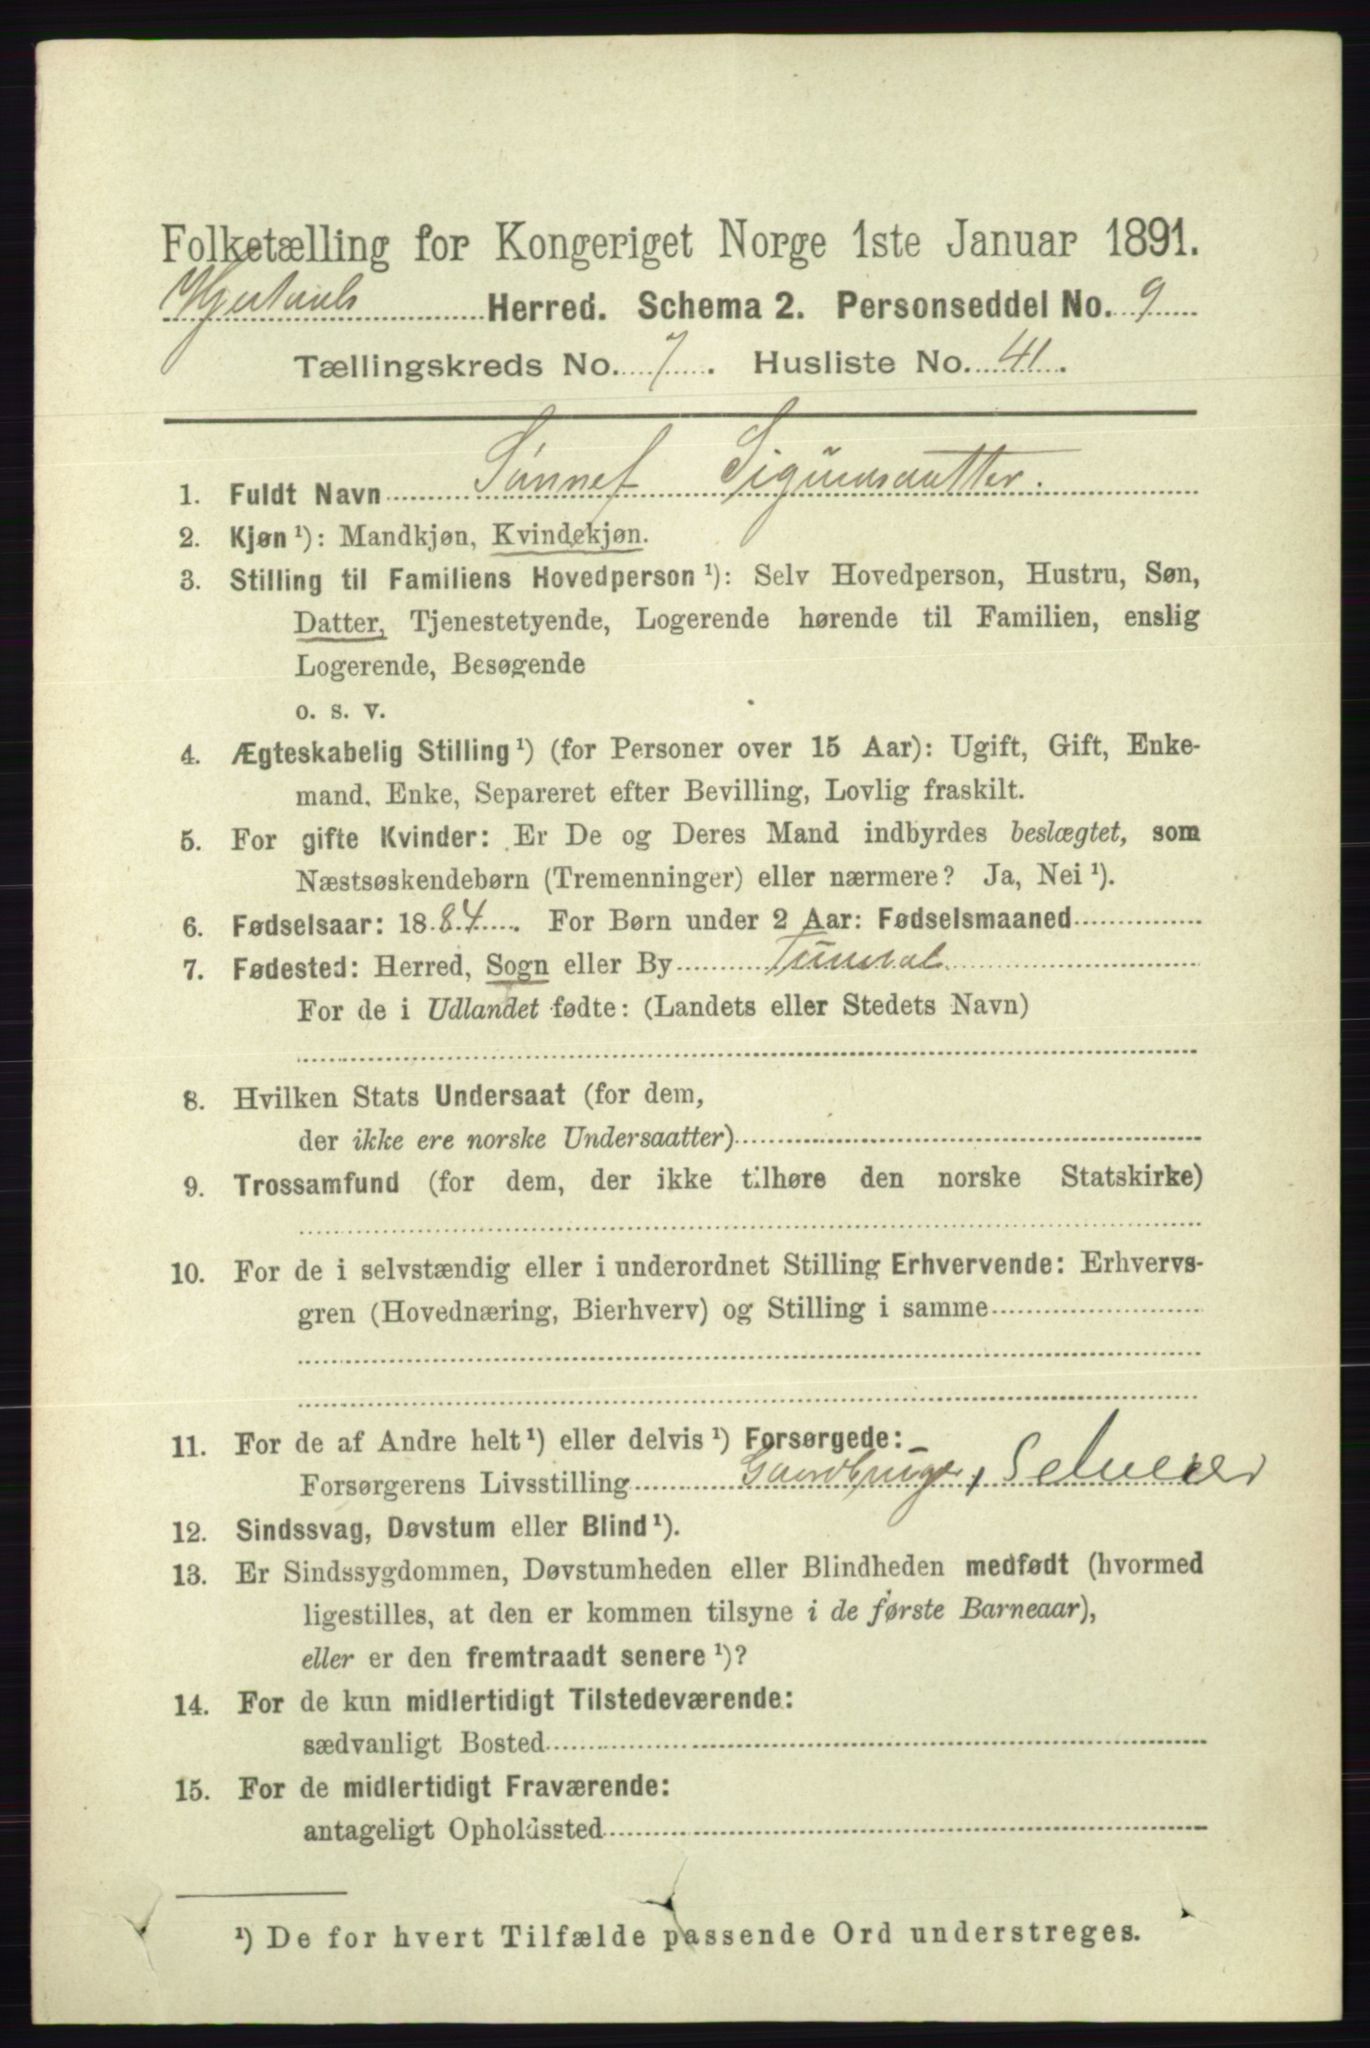 Folketælling for Kongeriget Norge 1ste Januar 1891.
Herred. Schema 2. Personseddel No. 9
Tællingskreds No. 7. Husliste No. 41.
1. Fuldt Navn Sønnef Sigurdsdatter.
2. Kjøn ¹): Mandkjøn, Kvindekjøn.
3. Stilling til Familiens Hovedperson ¹): Selv Hovedperson, Hustru, Søn,
Datter, Tjenestetyende, Logerende hørende til Familien, enslig
Logerende, Besøgende
o. s. v.
4. Ægteskabelig Stilling ¹) (for Personer over 15 Aar): Ugift, Gift, Enke-
mand, Enke, Separeret efter Bevilling, Lovlig fraskilt.
5. For gifte Kvinder: Er De og Deres Mand indbyrdes beslægtet, som
Næstsøskendebørn (Tremenninger) eller nærmere? Ja, Nei ¹).
6. Fødselsaar: 1884. For Børn under 2 Aar: Fødselsmaaned
7. Fødested: Herred, Sogn eller By Tuddal
For de i Udlandet fødte: (Landets eller Stedets Navn)
8. Hvilken Stats Undersaat (for dem,
der ikke ere norske Undersaatter)
9. Trossamfund (for dem, der ikke tilhøre den norske Statskirke)
10. For de i selvstændig eller i underordnet Stilling Erhvervende: Erhvervs-
gren (Hovednæring, Bierhverv) og Stilling i samme
11. For de af Andre helt ¹) eller delvis ¹) Forsørgede:
Forsørgerens Livsstilling Gaardbruger, Selveier
12. Sindssvag, Døvstum eller Blind ¹).
13. Er Sindssygdommen, Døvstumheden eller Blindheden medfødt (hvormed
ligestilles, at den er kommen tilsyne i de første Barneaar),
eller er den fremtraadt senere ¹)?
14. For de kun midlertidigt Tilstedeværende:
sædvanligt Bosted
15. For de midlertidigt Fraværende:
antageligt Opholdssted
¹) De for hvert Tilfælde passende Ord understreges.